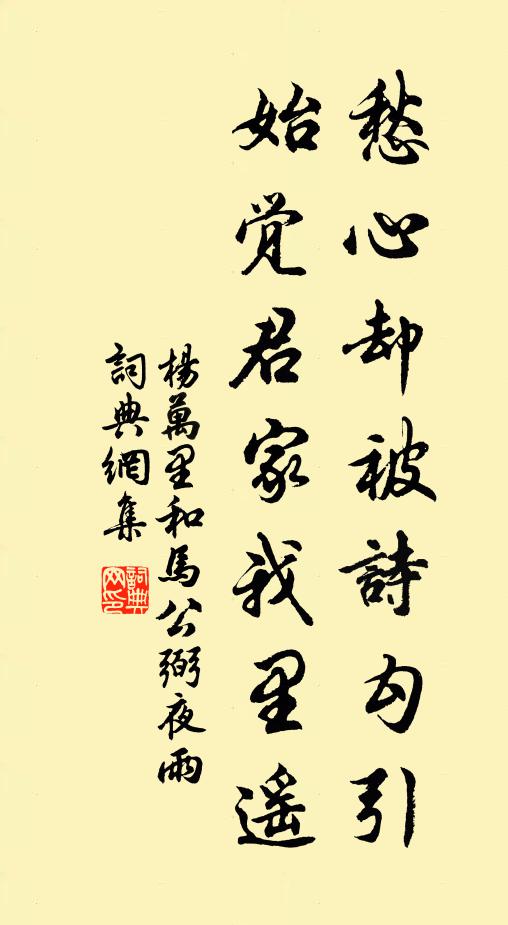 愁心却被詩勾引
始觉君家我里遥
楊萬里和馬公弼夜雨
詞典網集
詞典
网印